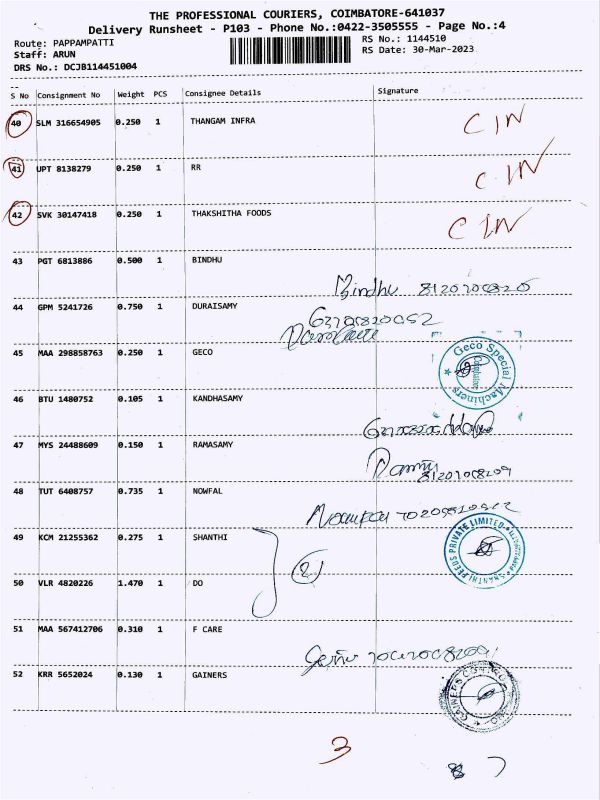 THE PROFESSIONAL COURIERS, COIMBATORE-641037
Delivery Runsheet - P103 - Phone No.:0422-3505555 - Page No.:4
Route: PAPPAMPATTI
Staff: ARUN
DRS No.: DCJB114451004
RS No.: 1144510
RS Date: 30-Mar-2023
S No Consignment No Weight PCS Consignee Details Signature
40 SLM 316654905 0.250 1 THANGAM INFRA CIN
41 UPT 8138279 0.250 1 RR CIN
42 SVK 30147418 0.250 1 THAKSHITHA FOODS CIN
43 PGT 6813886 0.500 1 BINDHU
Bindhu
44 GPM 5241726 0.750 1 DURAISAMY
45 MAA 298858763 0.250 1 GECO
Geco Special Machiners
46 BTU 1480752 0.105 1 KANDHASAMY
47 MYS 24488609 0.150 1 RAMASAMY
48 TUT 6408757 0.735 1 NOWFAL
49 KCM 21255362 0.275 1 SHANTHI
SHANTHI FEEDS PRIVATE LIMITED
50 VLR 4820226 1.470 1 DO
2
51 MAA 567412706 0.310 1 F CARE
52 KRR 5652024 0.130 1 GAINERS
GAINERS
3